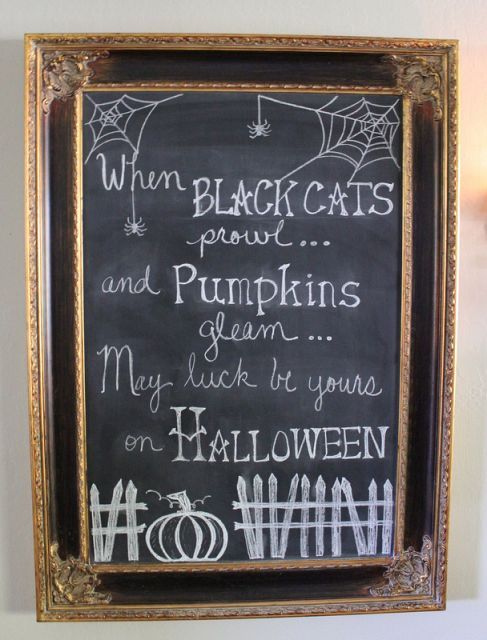 When BLACK CATS
prowl...
and Pumpkins
gleam...
May luck be yours
on HALLOWEEN